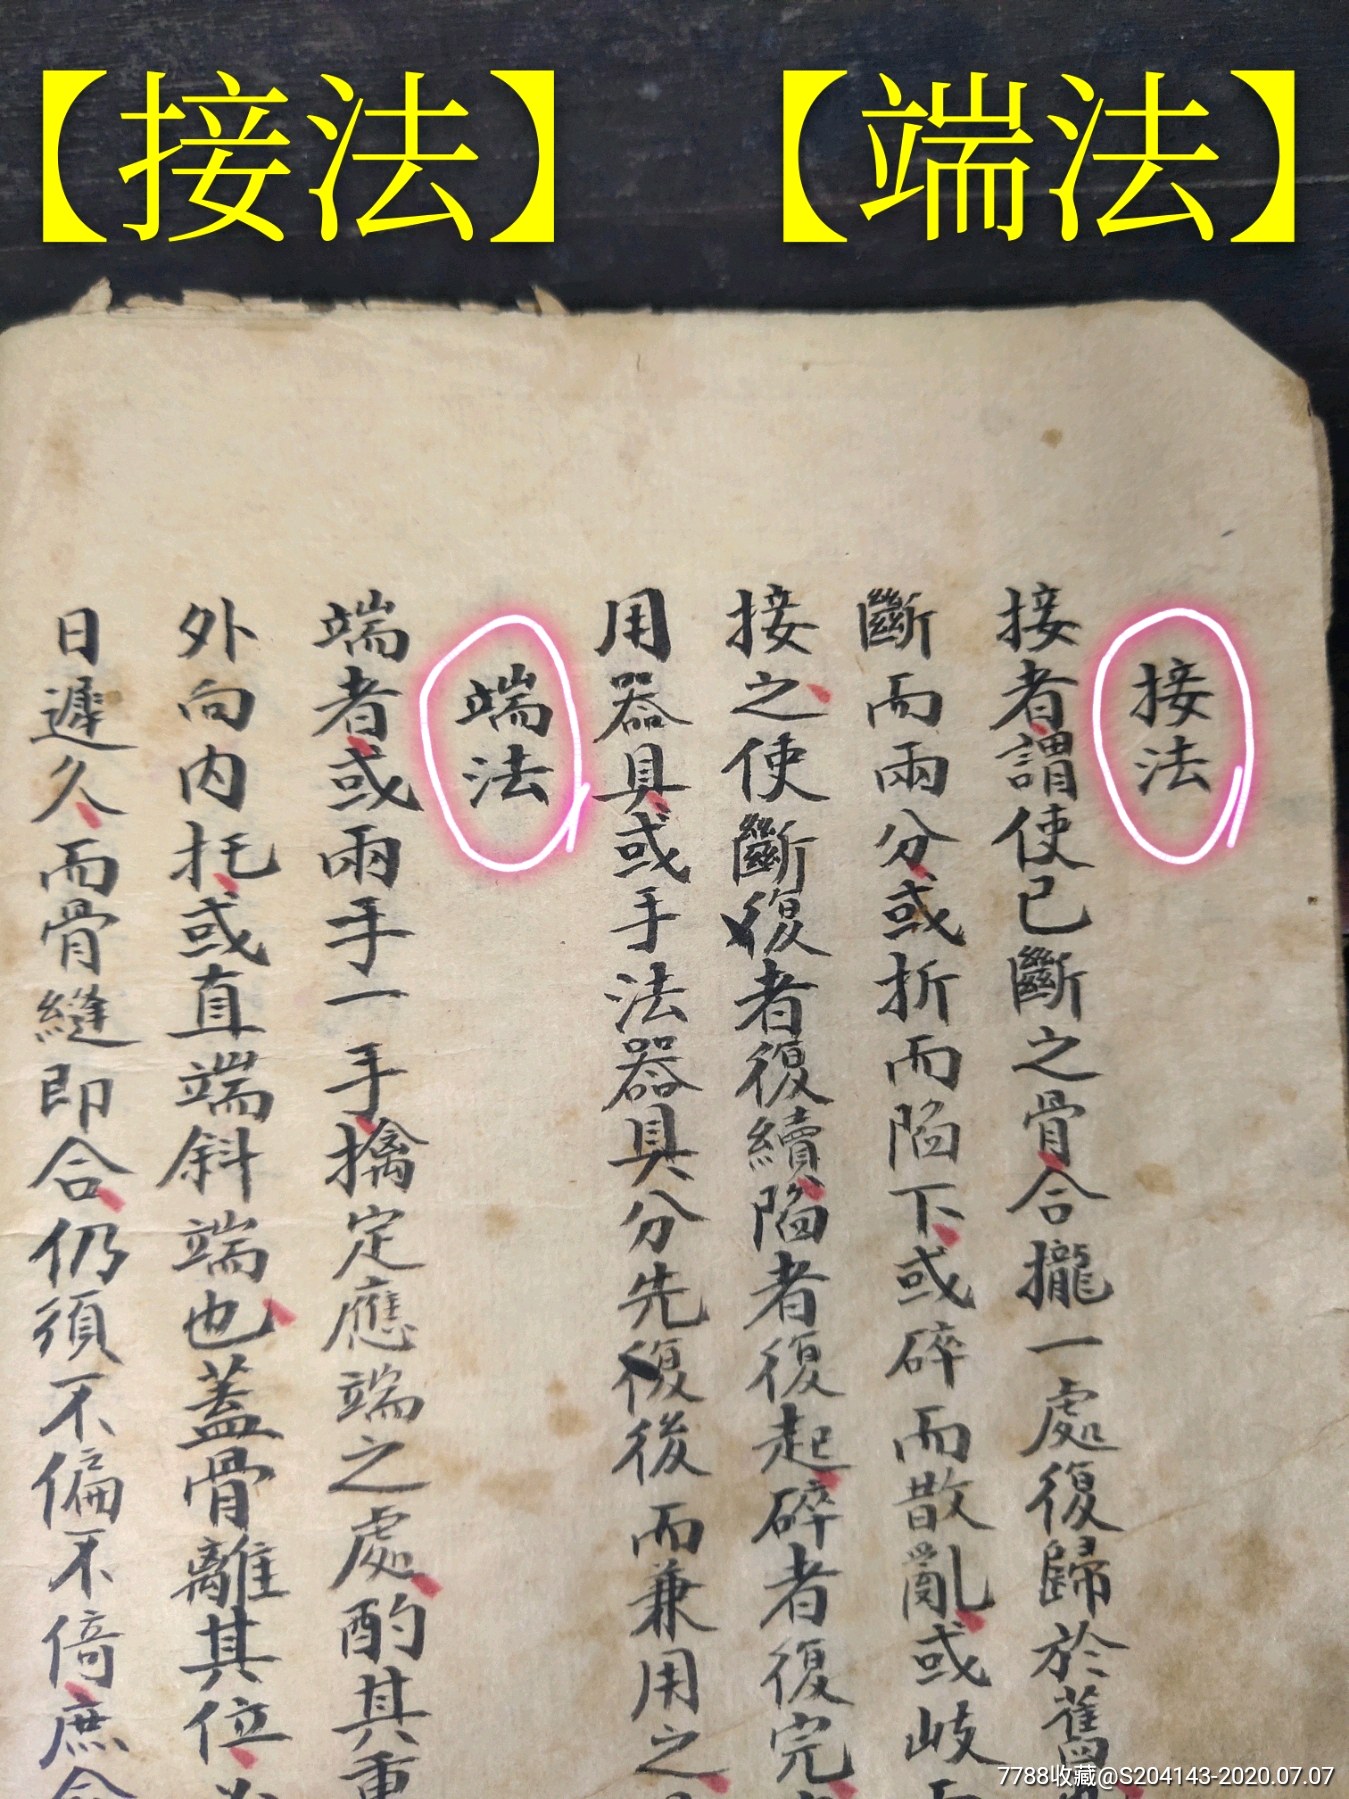 【接法】 【端法】
接法
接者謂使已斷之骨合攏一處復歸於舊
斷而兩分或折而陷下或碎而散亂或岐而
接之使斷復者復續陷者復起碎者復完
用器具或手法器具分先復後而兼用之
端法
端者或兩手一手擒定應端之處酌其重
外向内托或直端斜端也蓋骨離其位
日遲久而骨縫即合仍須不偏不倚庶
7788收藏@S204143-2020.07.07